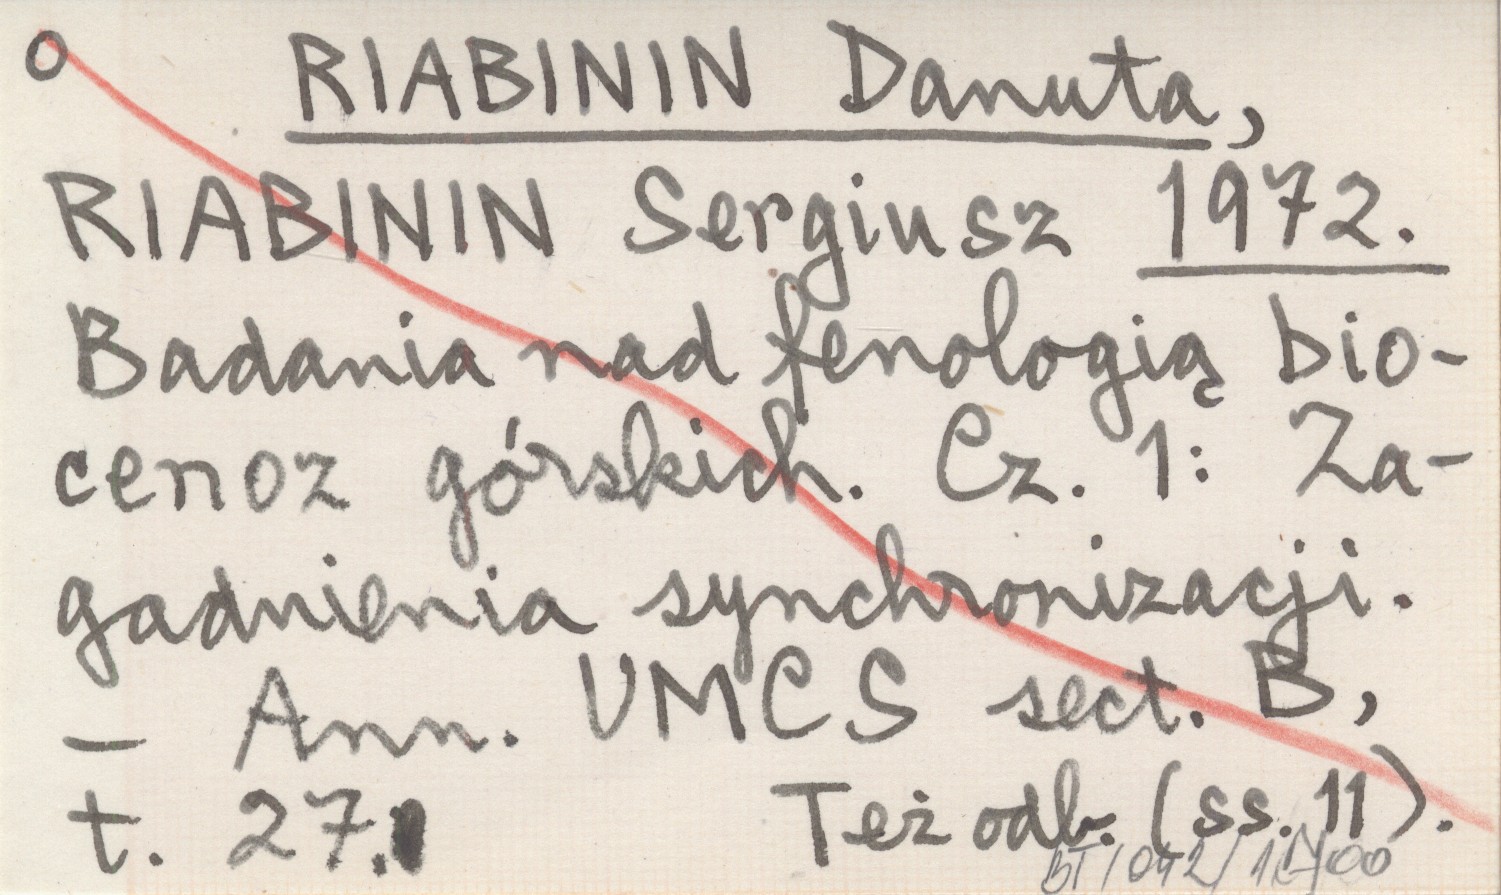 o RIABININ Danuta,
RIABININ Sergiusz 1972.
Badania nad fenologią bio-
cenoz górskich. Cz. 1: Za-
gadnienia synchronizacji.
– Ann. UMCS sect. B,
t. 27. Też odb. (ss. 11).
BT/042/